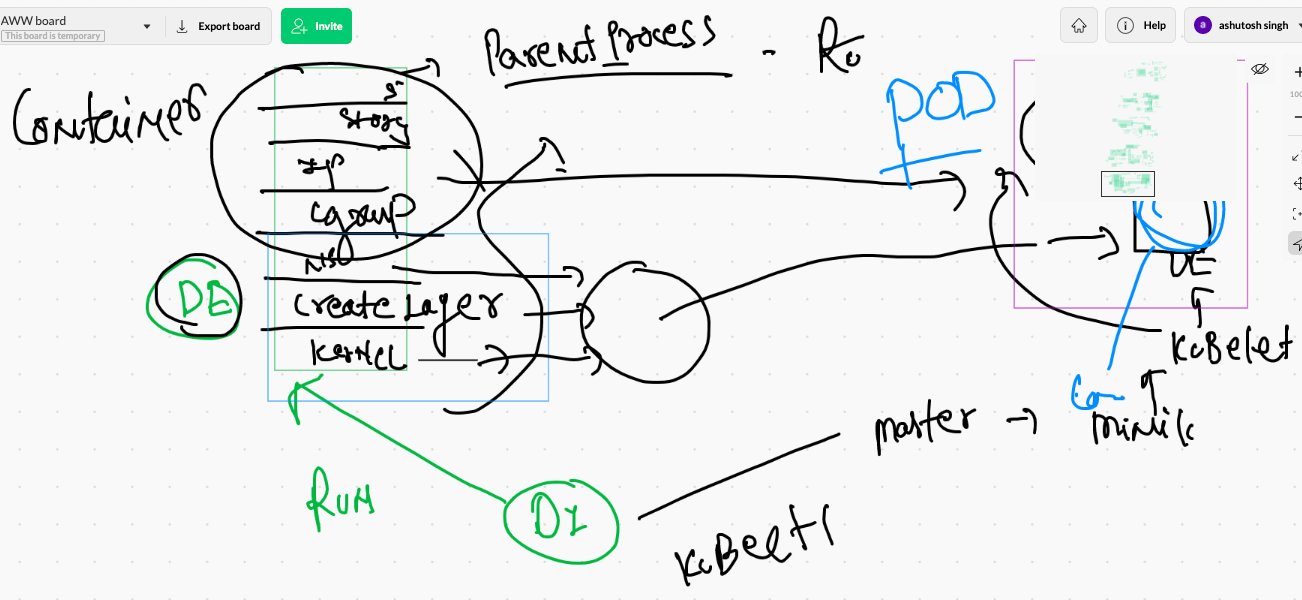 AWW board
This board is temporary
Export board
Invite
Help
ashutosh singh
Parent Process - Ro
Container
POD
Story
IP
Cgroup
DE
Create Layer
KerneL
DE
KuBelet
master →
RUN
DI